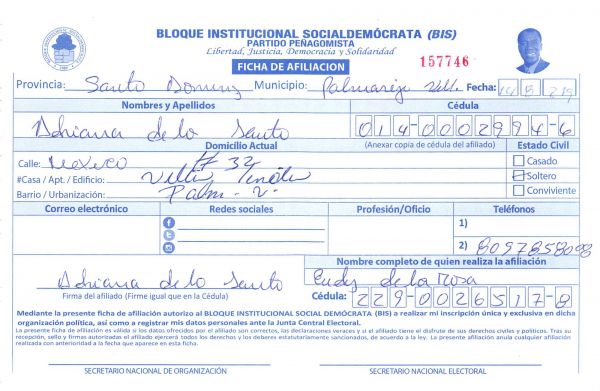 BLOQUE INSTITUCIONAL SOCIALDEMÓCRATA (BIS)
PARTIDO PEÑAGOMISTA
Libertad, Justicia, Democracia y Solidaridad
FICHA DE AFILIACION
157746
Provincia: Santo Doming Municipio: Palmarejo Vill. Fecha:
Nombres y Apellidos Cédula
Adriana de lo Santo 014-0002994-6
Domicilio Actual (Anexar copia de cédula del afiliado) Estado Civil
Calle: Mexico # 32 Casado
#Casa / Apt. / Edificio: Villa Linda Soltero
Barrio / Urbanización: Palm-V. Conviviente
Correo electrónico Redes sociales Profesión/Oficio Teléfonos
1)
2) 8097858098
Nombre completo de quien realiza la afiliación
Adriana de lo Santo Eudy de la Rosa
Firma del afiliado (Firme igual que en la Cédula) Cédula: 229-0026517-8
Mediante la presente ficha de afiliación autorizo al BLOQUE INSTITUCIONAL SOCIAL DEMÓCRATA (BIS) a realizar mi inscripción única y exclusiva en dicha
organización política, así como a registrar mis datos personales ante la Junta Central Electoral.
La presente ficha de afiliación es válida si los datos ofrecidos por el afiliado son correctos, las declaraciones veraces y si el afiliado tiene el disfrute de sus derechos civiles y políticos. Tras su
recepción, sello y firmas autorizadas el afiliado ejercerá todos los derechos y los deberes estatutariamente sancionados, de acuerdo a la ley. La presente afiliación anula cualquier afiliación
realizada con anterioridad a la fecha que aparece en esta ficha.
SECRETARIO NACIONAL DE ORGANIZACIÓN SECRETARIO NACIONAL ELECTORAL